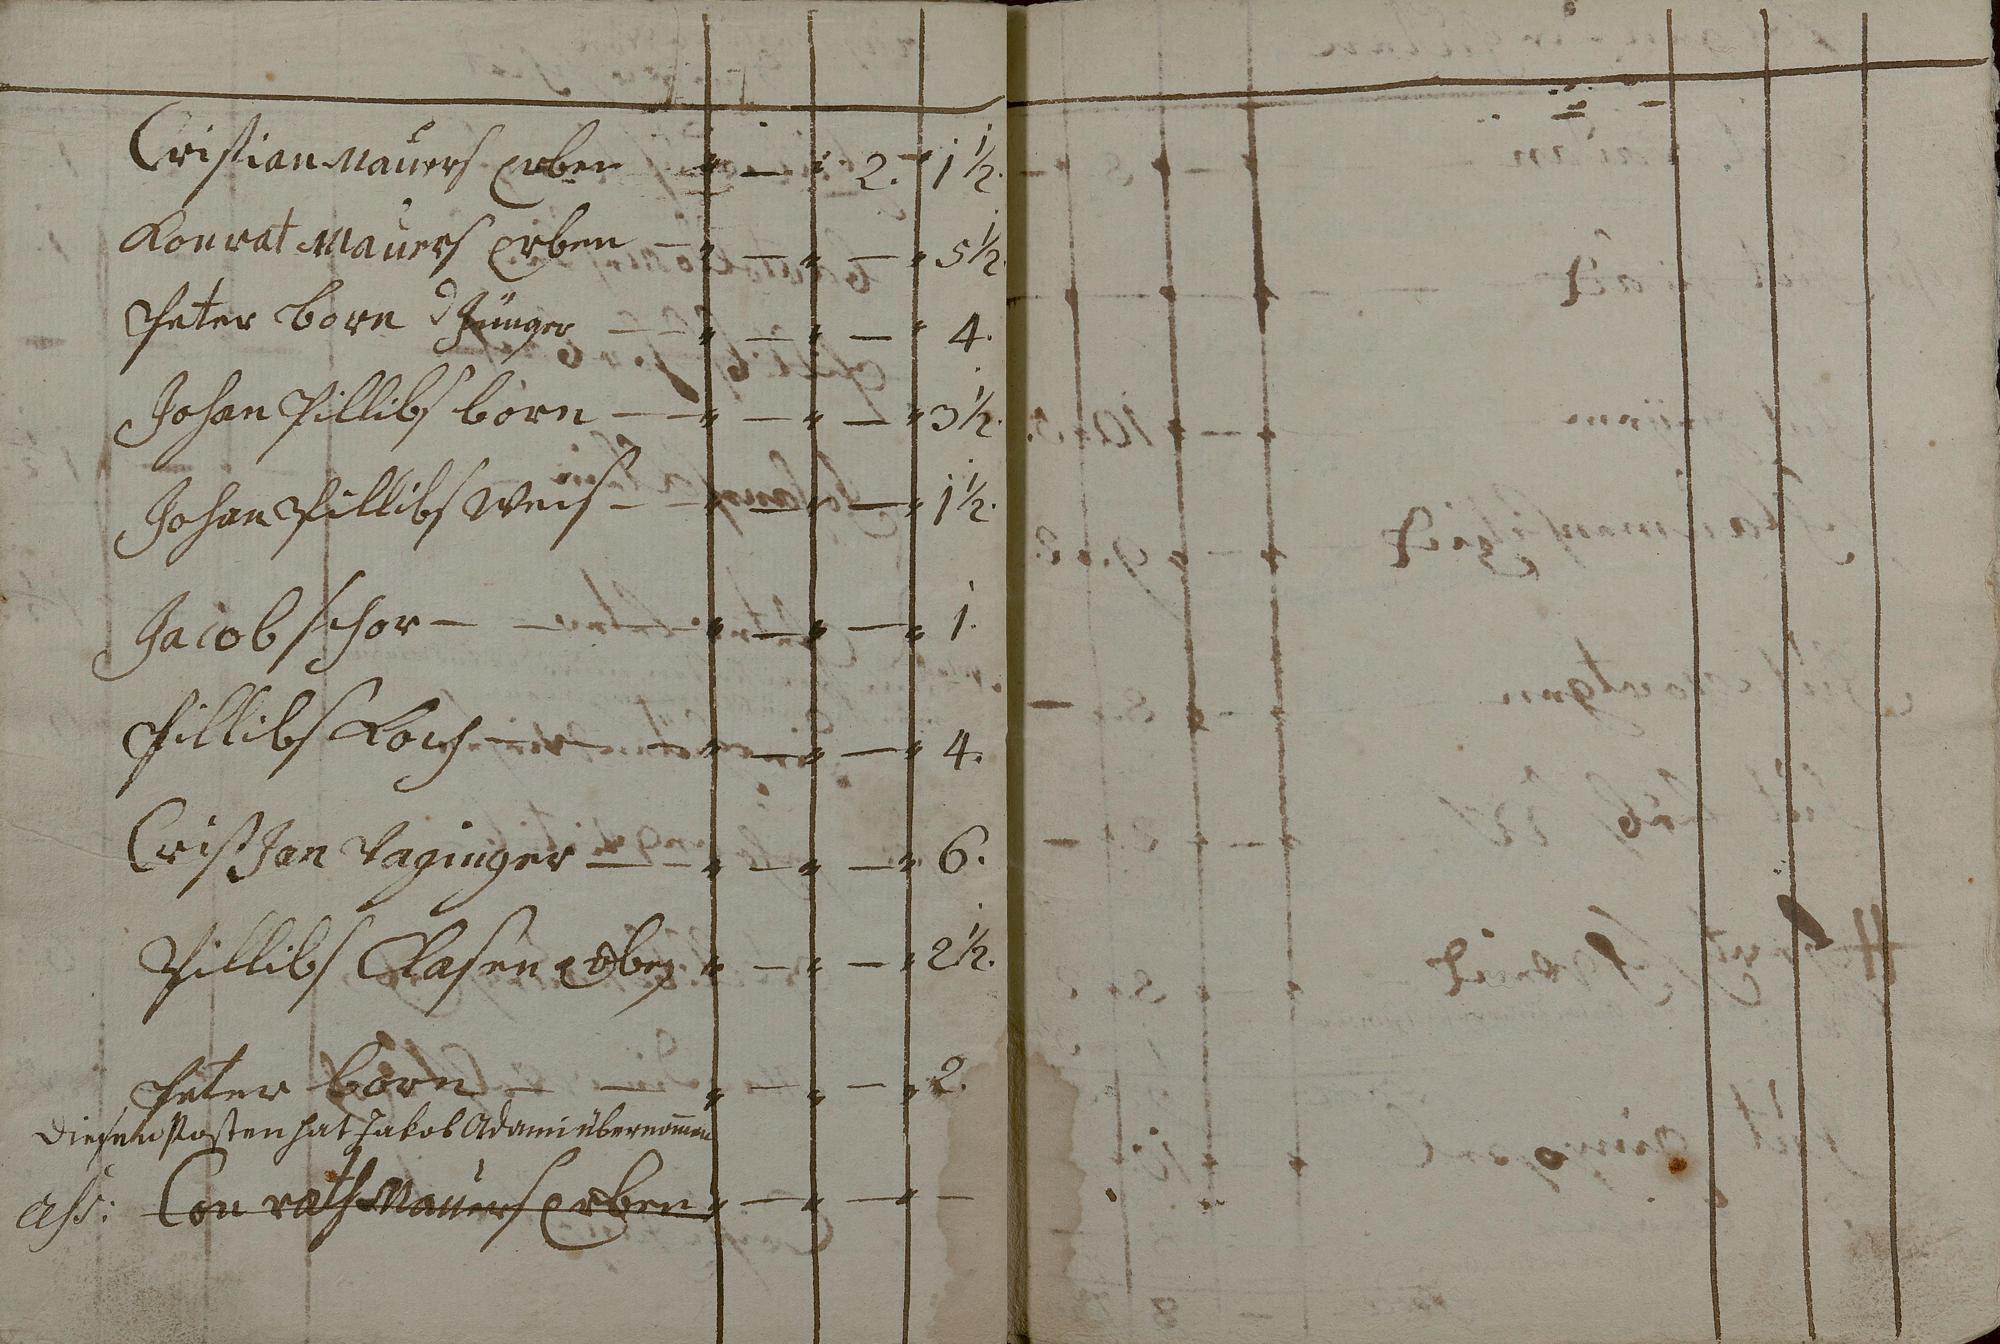 Cristian Mauers Erben " — " 2. " 1 1/2.
Konrat Mauers Erben — " — " — " 5 1/2.
Peter Born d Jünger — — " — " — " 4.
Johan Pillibs born — — " — " — " 3 1/2.
Johan Pillibs Weis — — " — " — " 1 1/2.
Jacob schor — — " — " — " 1.
Pillibs Koch — — — " — " — " 4.
Crist Jan — " — " — " 6.
Pillibs Clasen Erben " — " — " 2 1/2.
Peter born — — " — " — " 2.
Diesen Posten hat Jakob Adami übernommen
Conrath Mauers Erben " — " — " —